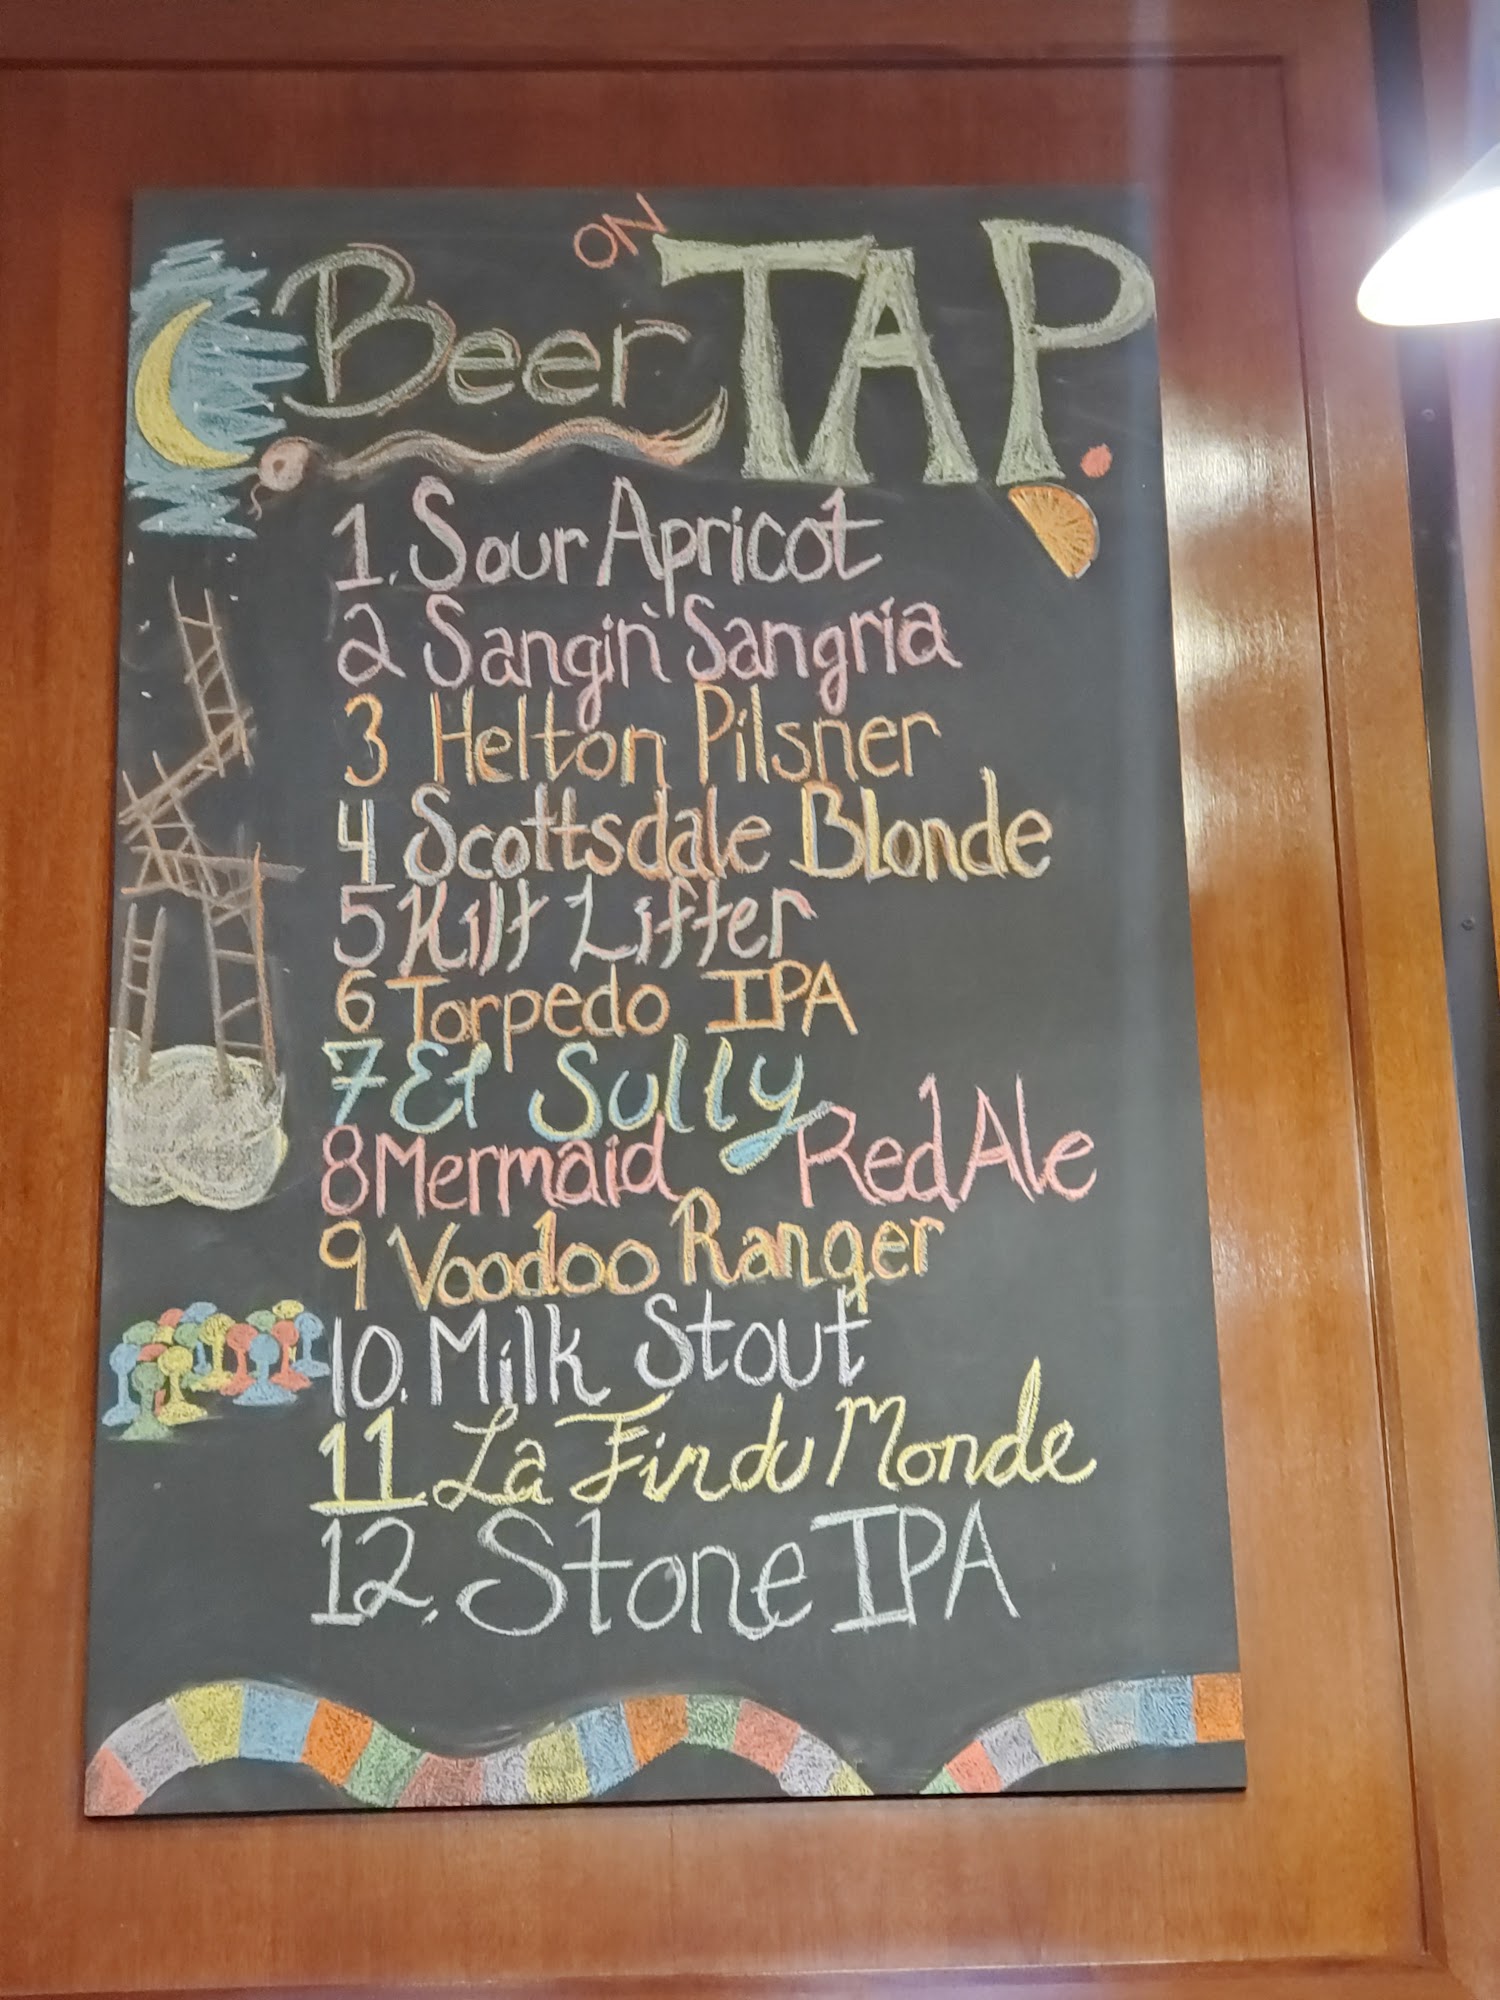 Beer ON TAP.
1. Sour Apricot
2 Sangin' Sangria
3 Helton Pilsner
4 Scottsdale Blonde
5 Kilt Lifter
6 Torpedo IPA
7 El Sully
8 Mermaid Red Ale
9 Voodoo Ranger
10. Milk Stout
11. La Fin du Monde
12. Stone IPA